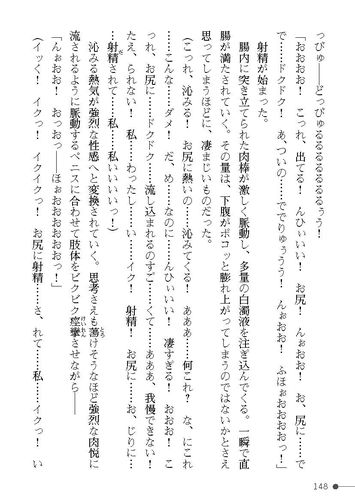 っぴゅ――どっぴゅるるるるるるるぅぅ！
「おおおお！　こっれ、出てる！　んひぃいい！　お尻！　んぉおお！　お、お尻に……で……ドクドク！　あ、つぃの……ででりゅぅうう！　んぉおお！　ふほぉおおおおっ！」
　射精が始まった。
　腸内に突き立てられた肉棒が激しく脈動し、多量の白濁液を注ぎ込んでくる。一瞬で直
腸が満たされていく。その量は、下腹がボコッと膨れ上がってしまうのではないかとさえ
思ってしまうほどに、凄まじいものだった。
（こっれ、沁みる！　お尻に熱いの……沁みてくる！　あああ……何これ？　な、にこれ
……こんな……ダメ！　だ、め……なのに……んひぃいい！　凄すぎる！　おおお！　こ
っれ、お尻に……ドクドク……流し込まれるのすご……くて……あああ、我慢できない！
たえ、られない！　私……わったし……い……イク！　射精！　お尻に……お、じりに…
…射精されて……私……私いいいいっ！）
　沁みる熱気が強烈な性感へと変換されていく。思考さえも蕩けそうなほど強烈な肉悦に
流されるように脈動するペニスに合わせて肢体をビクビク痙攣させながら――
「んぉおお！　おっおっ――ほぉおおおおおっ！」
（イッく！　イクっ！　イクイクっ！　お尻に射精……さ、れて……私……イクっ！　い
148